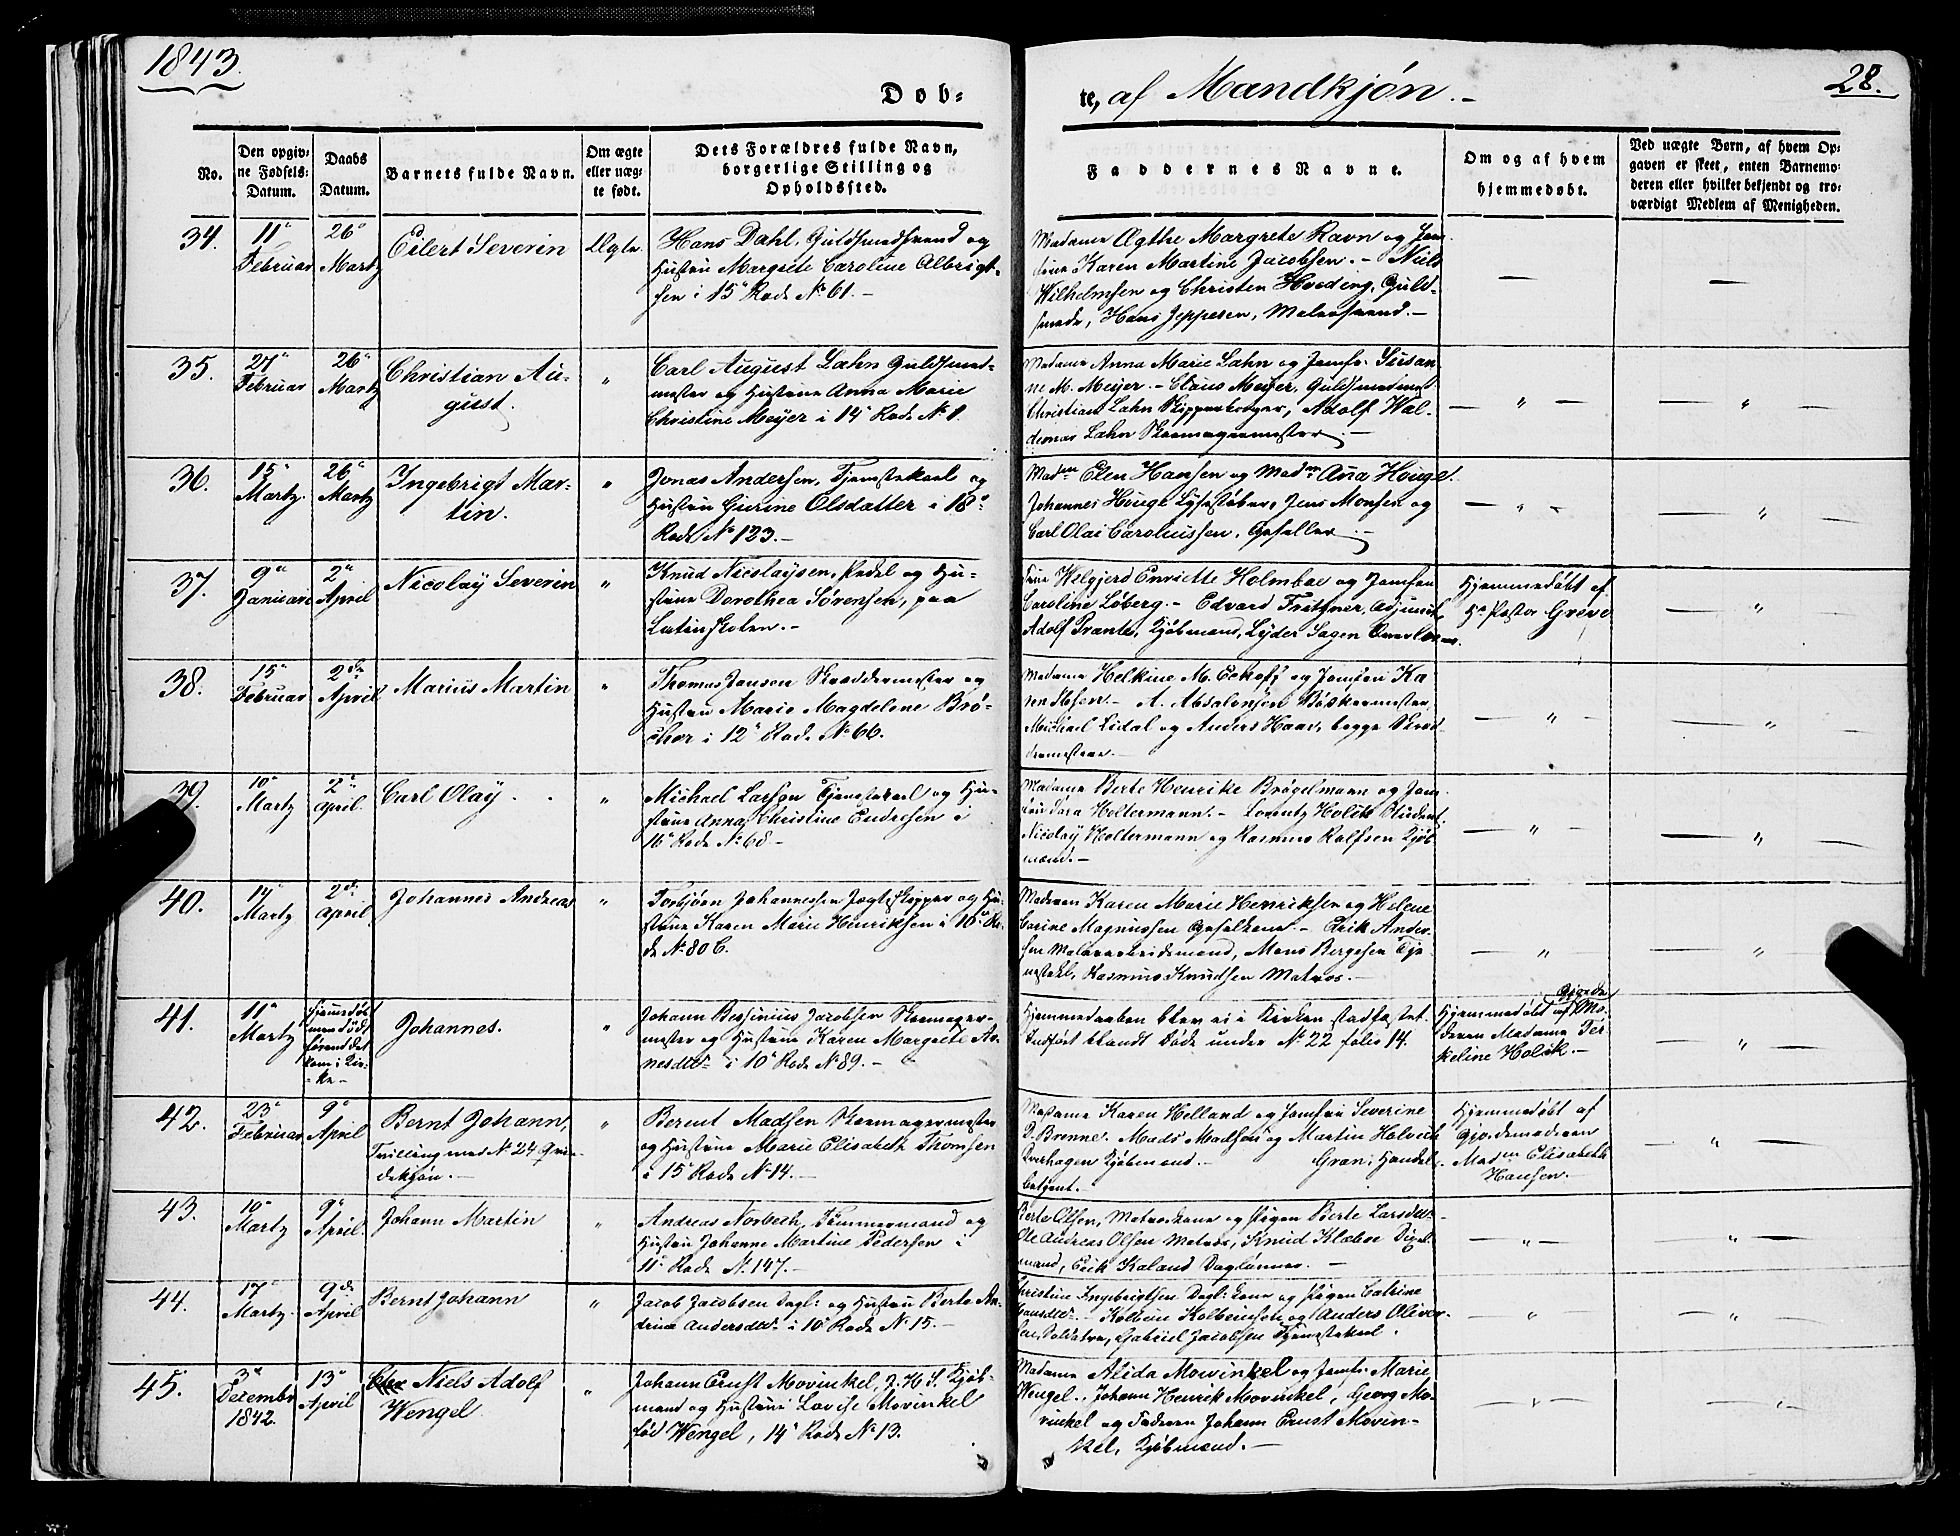 1843.
Døb-
te, af Mandkjøn.-
28.
No.
Den opgiv-
ne Fødsels-
Datum.
Daabs
Datum.
Barnets fulde Navn.
Om ægte
eller uæg-
te født.
Dets Forældres fulde Navn,
borgerlige Stilling og
Opholdssted.
Faddernes Navne.
Om og af hvem
hjemmedøbt.
Ved uægte Børn, af hvem Op-
gaven er skeet, enten Barnemo-
deren eller hvilket bekjendt og tro-
værdigt Medlem af Menigheden.
34.
11te
Februar
26de
Martz
Eilert Severin
Ægte
Hans Dahl, Guldsmedsvend og
Hustru Margrete Caroline Albrigt-
sen i 15de Rode No 61.-
Madame Ægthe Margrete Ravn og Jom-
fru Karen Martine Jacobsen.- Niels
Wilhelmsen og Christen Hveding, Guld-
smede, Hans Jeppesen, Malersvend.-
35.
27de
Februar
26de
Martz
Christian Au-
gust.
"
Carl August Lahn Guldsmed-
mester og Hustrue Anna Marie
Christine Meyer i 14de Rode No 1.
Madame Anna Marie Lahn og Jomfr. Susan-
ne M. Meyer.- Claus Meyer, Guldsmedmest
Christian Lahn Skipperborger, Adolf Wal-
demar Lahn Skomagermester.-
36.
15de
Martz.
26de
Martz
Ingebrigt Mar-
tin.
"
Jonas Andersen, Tjenestekarl og
Hustru Gurine Olsdatter i 18de
Rode No 123.-
Madm Elen Hansen og Madm Ana Houge.
Johannes Houge Lysestøber, Jens Monsen og
Carl Olai Caroliussen, Geseller.-
37.
9de
Januar
2den
April
Nicolay Severin
"
Knud Nicolaysen, Pedel og Hu-
strue Dorothea Sørensen, paa
Latinskolen.-
Frue Welgjerd Enriette Holmboe og Jomfru
Caroline Løberg.- Edvard Fritzner, Adjunkt,
Adolf Prante, Kjøbmand, Lyder Sagen Overlærer.
Hjemmedøbt af
Hr Pastor Greve
38.
15de
Februar
2den
April
Marius Martin
"
Thomas Jansen Skræddermester og
Hustru Marie Magdelene Brø-
cher i 12te Rode No 66.
Madame Helkine M. Eckhoff og Jomfru Ka
ren Ibsen- A. Absalonsen Bødkermester
Michael Lidal og Anders Haar, begge Skræd-
dermestere.-
39.
10de
Martz
2den
April.
Carl Olay
"
Michael Larsen Tjenestekarl og Hu-
strue Anna Christine Endresen i
16de Rode No 68-
Madame Berte Henrike Brøgelmann og Jom-
fru Sara Holtermann.- Lorentz Holck Student,
Nicolay Holtermann og Rasmus Rolfsen Kjøb
mænd.-
40.
14de
Martz
2den
April
Johannes Andreas
"
Torbjørn Johannessen Jægtskipper og Hu-
strue Karen Marie Henriksen i 10de Ro-
de No 80 C.
Madamen Karen Marie Henriksen og Helene
Carine Magnussen Geselkone.- Erik Ander-
sen Malerarbeidsmand, Mons Bergesen Tje-
nestekl, Rasmus Knudsen Matros.-
41.
11te
Martz
Hjemmedøbt
men død
førend det
kom i Kir-
ke-
Johannes.
"
Johann Bessinius Jacobsen Skomager-
mester og Hustrue Karen Margrete Ar-
nesdtr i 10de Rode No 89.-
Hjemmedaaben blev ei i Kirken stadfæstet.
Indført blandt Døde under No 22 folio 14.
Hjemmedøbt af Gjorde
Mo-
deren Madame Ter
keline Holck.-
42.
23de
Februar
9de
April
Bernt Johann,
Tvilling med No 24 Qvin-
dekjøn.-
"
Berent Madsen Skomagermester
og Hustrue Marie Elisabeth Thomsen
i 15de Rode No 14.-
Madame Karen Helland og Jomfru Severine
D. Brenne. Mads Madsen og Martin Holvech
Overhagen Kjøbmænd.- Gran, Handels-
betjent.-
Hjemmedøbt af
Gjordemoderen
Madm Elisabeth
Hansen.
43.
16de
Martz
9de
April.
Johann Martin
"
Andreas Norbech, Tømmermand og
Hustru Johanne Martine Pedersen i
11te Rode No 147.-
Berte Olsen, Matroskone og Pigen Berte Larsdtr-
Ole Andreas Olsen Matros, Knud Klæboe Digel-
mand, Erik Kaland Daglønner.-
44.
17de
Martz.
9de
April
Bernt Johann
"
Jacob Jacobsen Dagl: og Hustru Berte An-
drine Andersdtr i 10de Rode No 15.-
Christine Ingebrigtsen Dagl: kone og Pigen Catrine
Hansdtr.- Kolbein Kolbeinsen og Anders Oliver-
sen Soldater, Gabriel Jacobsen Tjenestekarl.
45.
3die
December
1842.
13de
April
Niels Adolf
Wengel
"
Johann Ernst Mowinkel, J. H. S. Kjøb-
mand og Hustrue Lovise Mowinkel
fød Wengel, 14de Rode No 13.
Madame Alida Mowinkel og Jomfr. Marie
Wengel.. Johann Henrik Mowinkel, Georg Mo-
winkel og Faderen Johann Ernst Mowin-
kel, Kjøbmænd.-